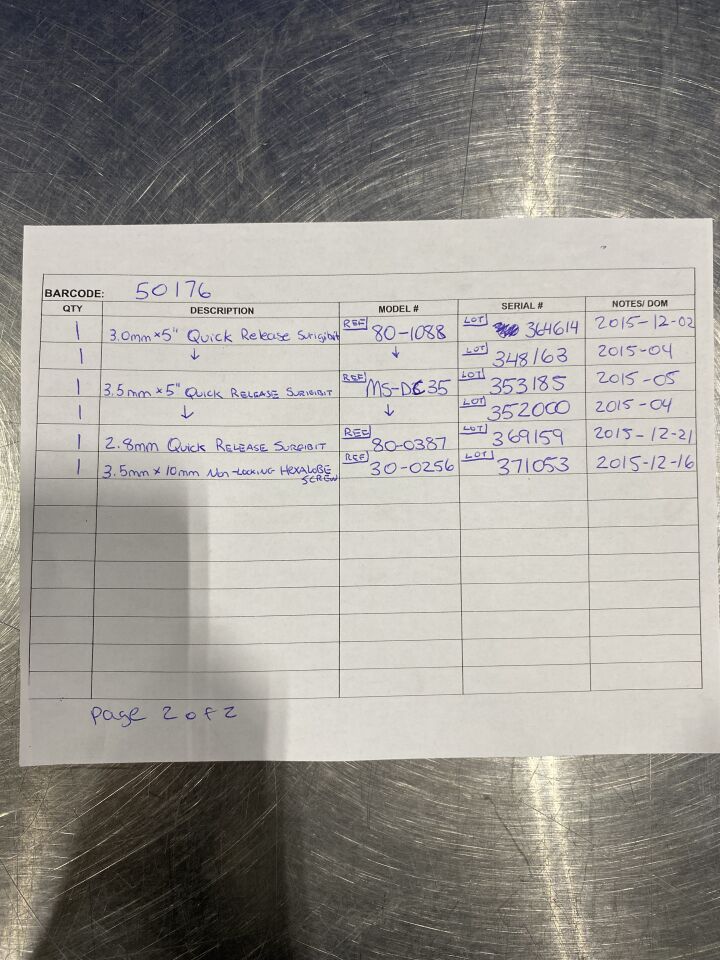 BARCODE: 50176
QTY DESCRIPTION MODEL # SERIAL # NOTES/ DOM
1 3.0mm × 5" Quick Release Surigibit REF 80-1088 LOT 364614 2015-12-02
1 ↓ ↓ LOT 348163 2015-04
1 3.5mm × 5" QUICK RELEASE SURIGIBIT REF MS-DC35 LOT 353185 2015-05
1 ↓ ↓ LOT 352000 2015-04
1 2.8mm QUICK RELEASE SURGIBIT REF 80-0387 LOT 369159 2015-12-21
1 3.5mm × 10mm NON-LOCKING HEXALOBE SCREW REF 30-0256 LOT 371053 2015-12-16
page 2 of 2